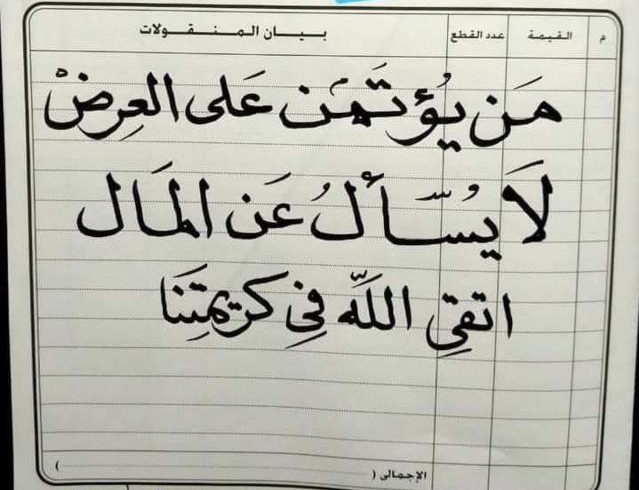 م القيمة عدد القطع بيان المنقولات
مَن يُؤتَمَن عَلى العِرضْ
لَا يُسّأَلُ عَن المَال
اتقِي اللَّه فِي كريمتِنَا
الإجمالى ( )